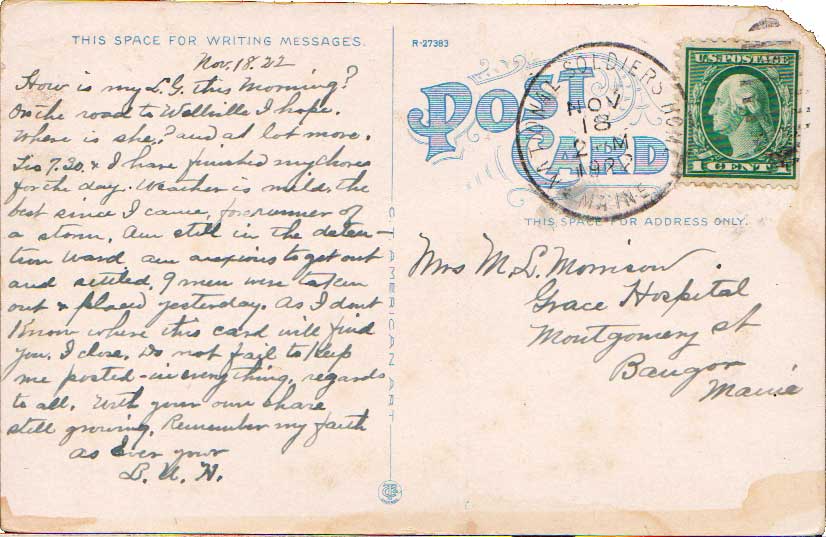 THIS SPACE FOR WRITING MESSAGES.
Nov. 18. 22
How is my L.G. this Morning?
On the road to Wellville I hope.
Where is she? and a lot more.
Tis 7.30. & I have finished my chores
for the day. Weather is mild, the
best since I came, forerunner of
a storm. Am still in the deten-
tion ward am anxious to get out
and settled, 9 men were taken
out & placed yesterday. As I dont
Know where this card will find
you. I close. Do not fail to Keep
me posted - in everything, regards
to all. With your own share
still growing. Remember my faith
as Ever your
C.T. AMERICAN ART
R-27383
POST CARD
NATIONAL SOLDIERS HOME
NOV
18
1922
MAINE
U.S. POSTAGE
1 CENT 1
THIS SPACE FOR ADDRESS ONLY.
Mrs M. L. Morrison.
Grace Hospital
Montgomery st
Bangor
Maine